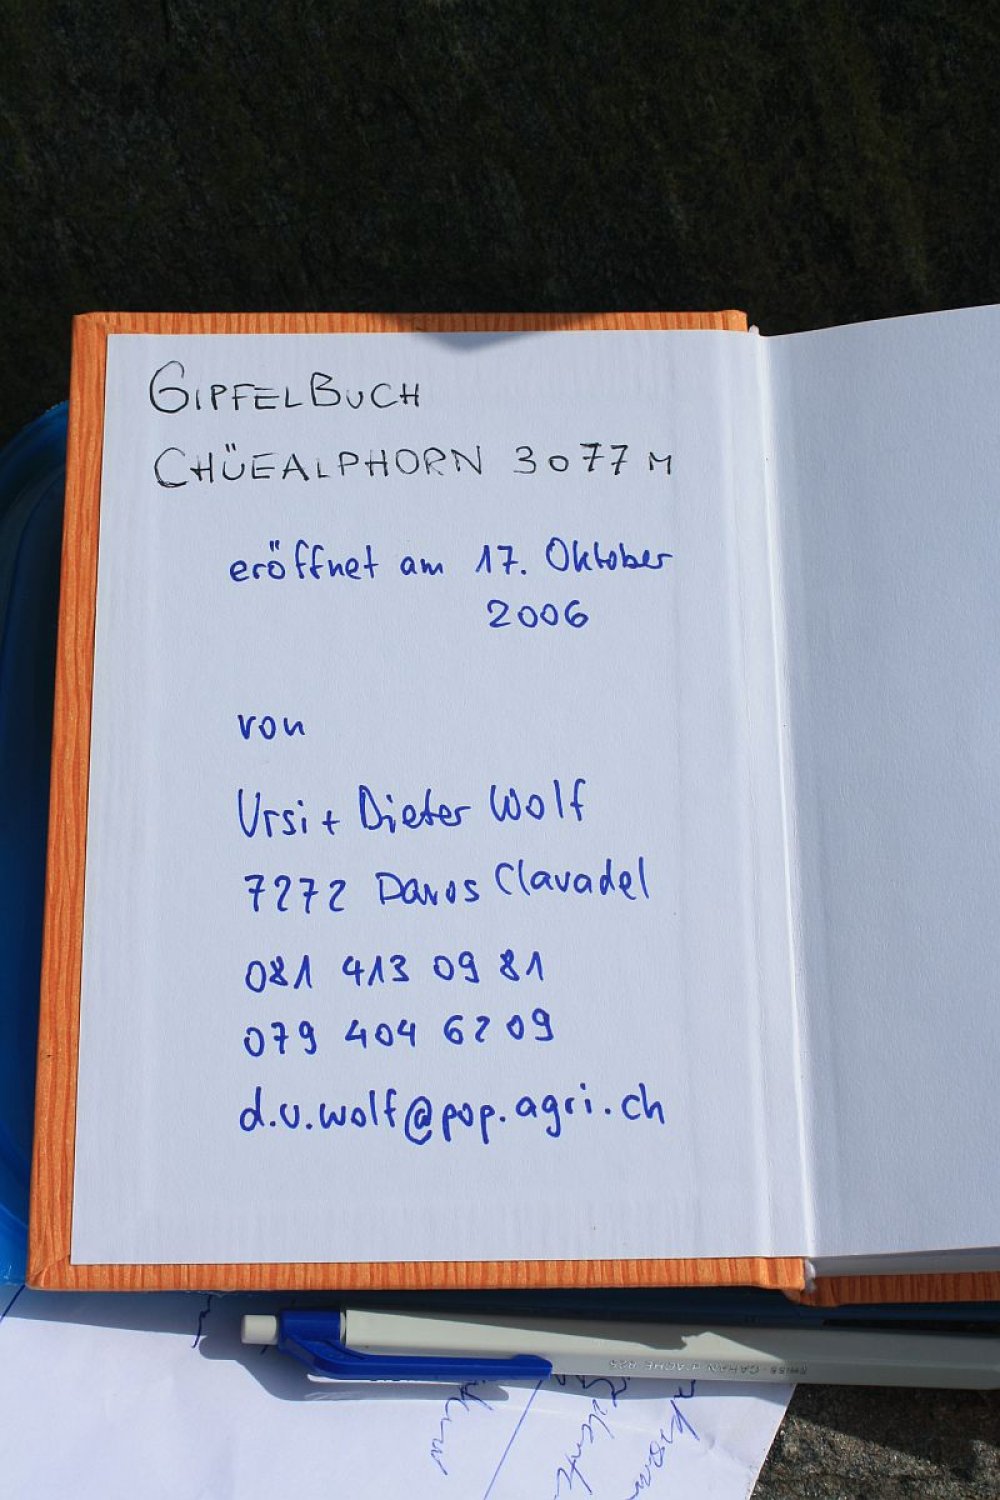 GIPFELBUCH
CHÜEALPHORN 3077 M
eröffnet am 17. Oktober
2006
von
Ursi + Dieter Wolf
7272 Davos Clavadel
081 413 09 81
079 404 62 09
d.u.wolf@pop.agri.ch
SWISS CARAN D'ACHE 825